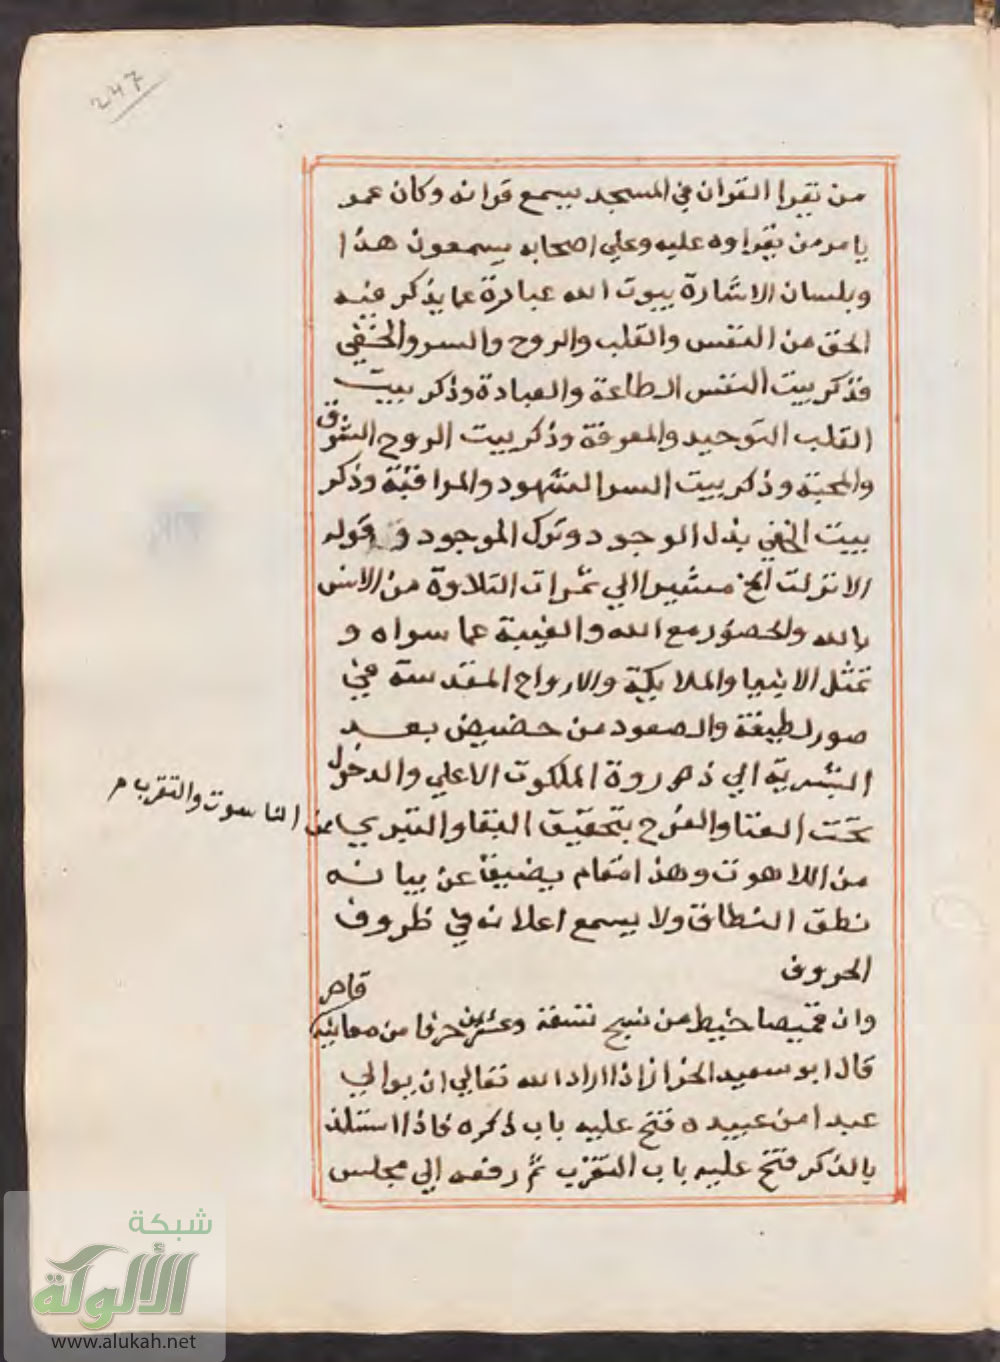 247
من يقرا القران في المسجد يسمع قرانه وكان عمر
يامر من يقراوه عليه وعلي اصحابه يسمعون هذا
وبلسان الاشارة بيوت الله عبارة عما يذكر فيه
الحق من النفس والقلب والروح والسر والخفي
فذكر بيت النفس الطاعة والعبادة وذكر بيت
القلب التوحيد والمعرفة وذكر بيت الروح الشوق
والمحبة وذكر بيت السر الشهود والمراقبة وذكر
بيت الخفي بذل الوجود وترك الموجود وقوله
الا نزلت الخ مشيرا الي ثمرات التلاوة من الانس
بالله والحضور مع الله والغيبة عما سواه و
تمثل الانبيا والملايكة والارواح المقدسة في
صور لطيفة والصعود من حضيض بعد
البشرية الي ذروة الملكوت الاعلي والدخول
تحت الفنا والخرج بتحقيق البقا والتبري عن الناسوت والتقرب
من اللاهوت وهذا مقام يضيق عن بيانه
نطق النطاق ولا يسمع اعلانه في ظروف
الحروف
وان قميصا خيط من نسج تسعة وعشرين حرفا من معانيه قاصر
قال ابو سعيد الخراز اذا اراد الله تعالي ان يوالي
عبدا من عبيده فتح عليه باب ذكره فاذا استلذ
بالذكر فتح عليه باب القرب ثم رفعه الي مجلس
شبكة
الألوكة
www.alukah.net